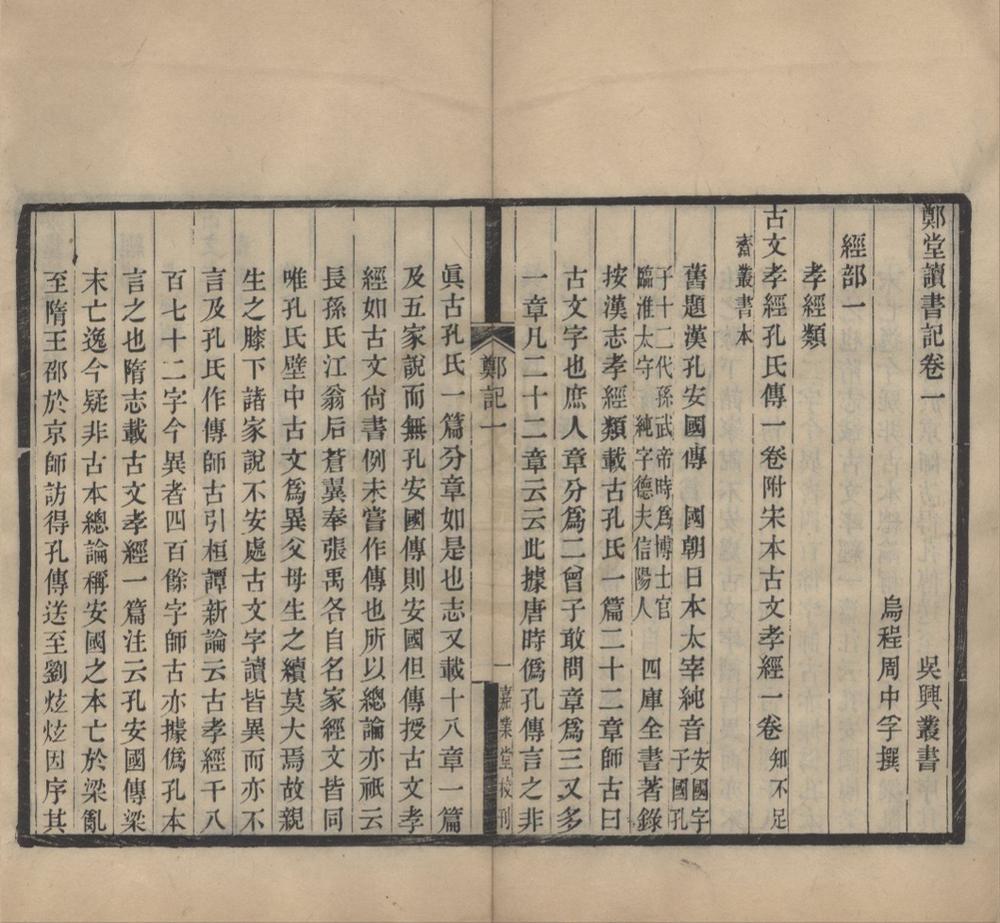 鄭堂讀書記卷一　吳興叢書
烏程周中孚撰
經部一
孝經類
古文孝經孔氏傳一卷附宋本古文孝經一卷知不足
齋叢書本
舊題漢孔安國傳　國朝日本太宰純音安國字子國孔
子十二代孫武帝時爲博士官臨淮太守純字德夫信陽人　四庫全書著錄
按漢志孝經類載古孔氏一篇二十二章師古曰
古文字也庶人章分爲二曾子敢問章爲三又多
一章凡二十二章云云此據唐時僞孔傳言之非
鄭記一
一
嘉業堂校刊
眞古孔氏一篇分章如是也志又載十八章一篇
及五家說而無孔安國傳則安國但傳授古文孝
經如古文尙書例未嘗作傳也所以總論亦祇云
長孫氏江翁后蒼翼奉張禹各自名家經文皆同
唯孔氏壁中古文爲異父母生之續莫大焉故親
生之膝下諸家說不安處古文字讀皆異而亦不
言及孔氏作傳師古引桓譚新論云古孝經千八
百七十二字今異者四百餘字師古亦據僞孔本
言之也隋志載古文孝經一篇注云孔安國傳梁
末亡逸今疑非古本總論稱安國之本亡於梁亂
至隋王邵於京師訪得孔傳送至劉炫炫因序其